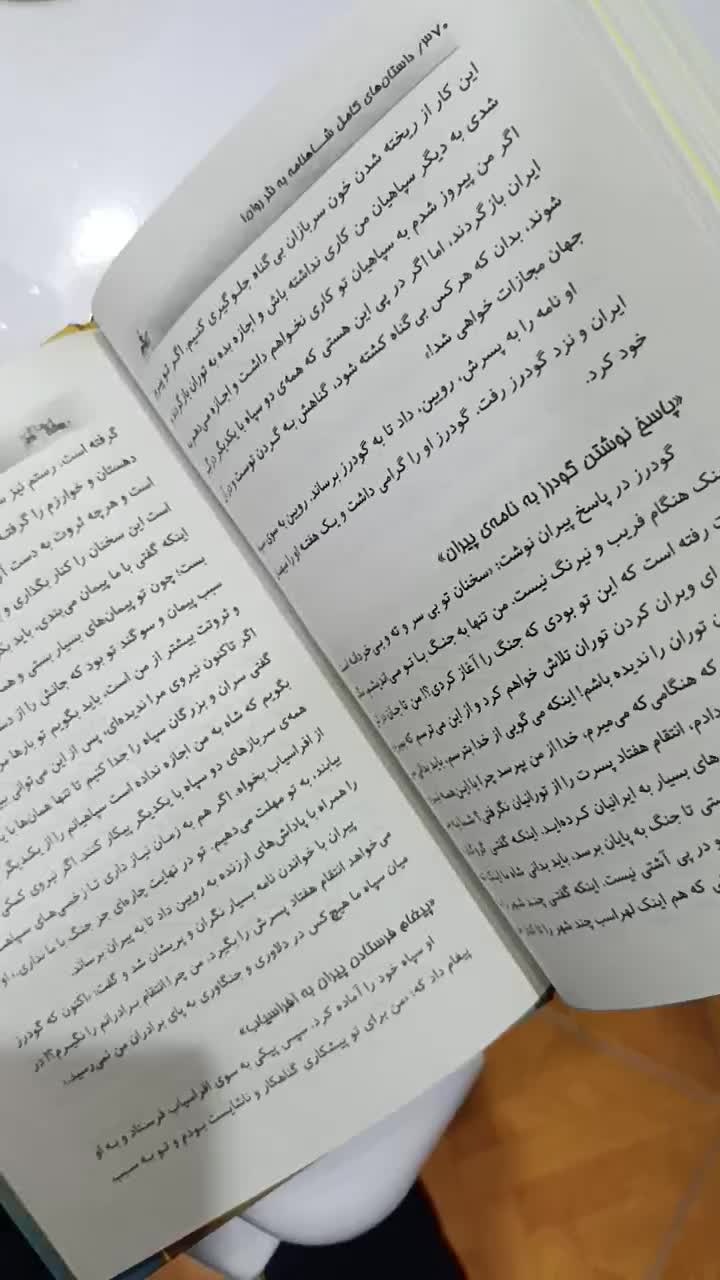 ۳۷۰/ داستان‌های کامل شاهنامه به نثر روان
این کار از ریخته شدن خون سربازان بی گناه جلوگیری کنیم. اگر تو پیروز
شدی به دیگر سپاهیان من کاری نداشته باش و اجازه بده به توران بازگردند
اگر من پیروز شدم به سپاهیان تو کاری نخواهم داشت و اجازه می‌دهم
ایران بازگردند، اما اگر در پی این هستی که همه‌ی دو سپاه با یکدیگر
شوند، بدان که هر کس بی گناه کشته شود، گناهش به گردن توست و در
جهان مجازات خواهی شد!»
او نامه را به پسرش، رویین، داد تا به گودرز برساند. رویین به سوی
ایران و نزد گودرز رفت. گودرز او را گرامی داشت و یک هفته او را
خود کرد.
«پاسخ نوشتن گودرز به نامه‌ی پیران»
گودرز در پاسخ پیران نوشت: «سخنان تو بی سر و ته و بی خردانه
هنگام فریب و نیرنگ نیست. من تنها به جنگ با تو می‌اندیشم
رفته است که این تو بودی که جنگ را آغاز کردی؟! من تا جان در
ای ویران کردن توران تلاش خواهم کرد و از این می‌ترسم که
توران را ندیده باشم! اینکه می گویی از خدا بترسم، باید بدانی
که هنگامی که می‌میرم، خدا از من بپرسد چرا با این همه
دادم، انتقام هفتاد پسرت را از تورانیان نگرفتی؟ شما به
های بسیار به ایرانیان کرده‌اید. اینکه گفتی
تا جنگ به پایان برسد، باید بدانی شاه ما
و در پی آشتی نیست. اینکه گفتی چند شهر را
که هم اینک لهراسب چند شهر را
گرفته است، رستم نیز
دهستان و خوارزم را گرفته
است و هرچه ثروت به دست
است این سخنان را کنار بگذاری و
اینکه گفتی با ما پیمان می‌بندی، باید
بست؛ چون تو پیمان‌های بسیار بستی و
سبب پیمان و سوگند تو بود که جانش را از
و ثروتت بیشتر از من است، باید بگویم تو بارها
اگر تاکنون نیروی مرا ندیده‌ای، پس از این می‌توانی
گفتی سران و بزرگان سپاه را جدا کنیم تا تنها همان‌ها با
بگویم که شاه به من اجازه نداده است سپاهیانم را از یکدیگر
همه‌ی سربازهای دو سپاه با یکدیگر پیکار کنند. اگر نیروی کمکی
از افراسیاب بخواه. اگر هم به زمان نیاز داری تا زخمی‌های
یابند، به تو مهلت می‌دهیم. تو در نهایت چاره‌ای جز جنگ با ما نداری.» او
را همراه با پاداش‌های ارزنده به رویین داد تا به پیران برساند.
پیران با خواندن نامه بسیار نگران و پریشان شد و گفت: «اکنون که گودرز
می‌خواهد انتقام هفتاد پسرش را بگیرد، من چرا انتقام برادرانم را نگیرم؟! در
میان سپاه ما هیچ کس در دلاوری و جنگاوری به پای برادران من نمی‌رسید.»
«پیغام فرستادن پیران به افراسیاب»
او سپاه خود را آماده کرد. سپس پیکی به سوی افراسیاب فرستاد و به او
پیغام داد که: «من برای تو پیشکاری گناهکار و ناشایست بودم و تو به سبب